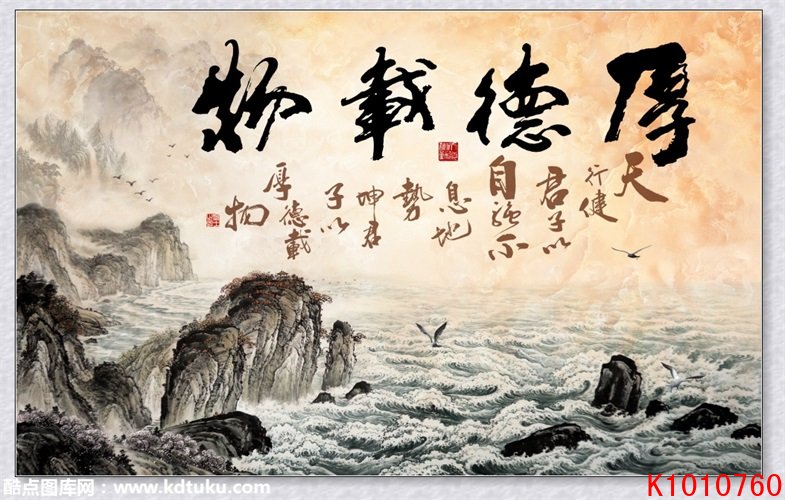 厚德載物
天
行健
君子以
自強不
息地
勢
坤君
子以
厚德載
物
酷点图库网：www.kdtuku.com
K1010760